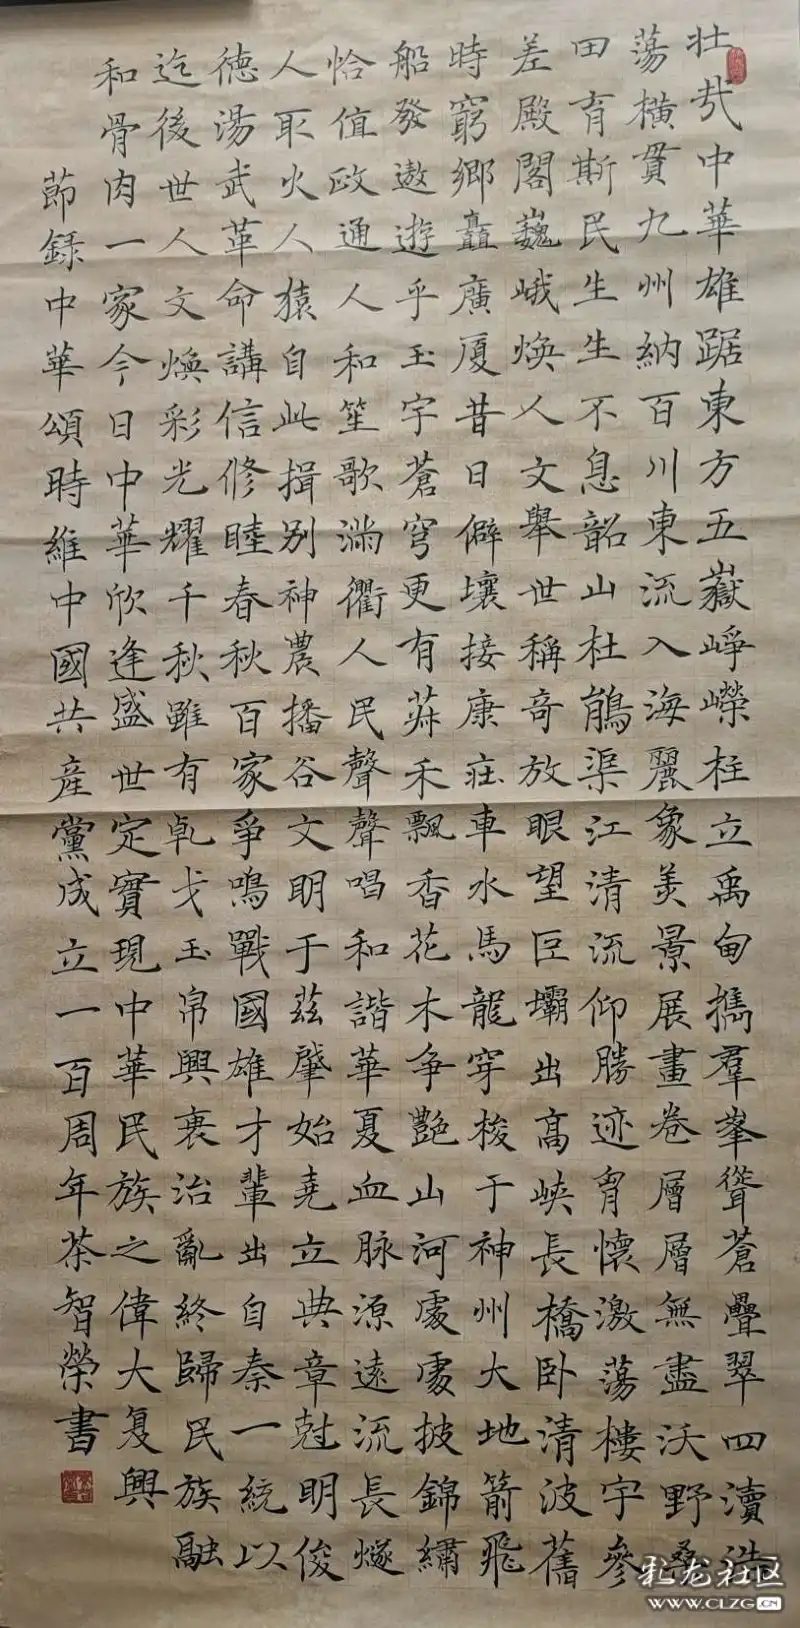 壯哉中華雄踞東方五嶽崢嶸柱立禹甸攜羣峯聳蒼疊翠四瀆浩
蕩橫貫九州納百川東流入海麗象美景展畫卷層層無盡沃野桑
田育斯民生生不息韶山杜鵑渠江清流仰勝迹胷懷激蕩樓宇參
差殿閣巍峨煥人文舉世稱奇放眼望巨壩出高峽長橋卧清波舊
時窮鄉矗廣厦昔日僻壤接康莊車水馬龍穿梭于神州大地箭飛
船發遨遊乎玉宇蒼穹更有蔴禾飄香花木争艷山河處處披錦繡
恰值政通人和笙歌滿衢人民聲聲唱和諧華夏血脉源遠流長燧
人取火人猿自此揖别神農播谷文明于茲肇始堯立典章尅明俊
德湯武革命講信修睦春秋百家爭鳴戰國雄才輩出自秦一統以
迄後世人文煥彩光耀千秋雖有乹戈玉帛興衰治亂終歸民族融
和骨肉一家今日中華欣逢盛世定實現中華民族之偉大复興
節錄中華頌時維中國共産黨成立一百周年茶智榮書
彩龙社区
WWW.CLZG.CN